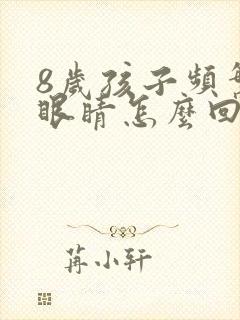 8歲孩子頻
眼睛怎麼回
苒小轩